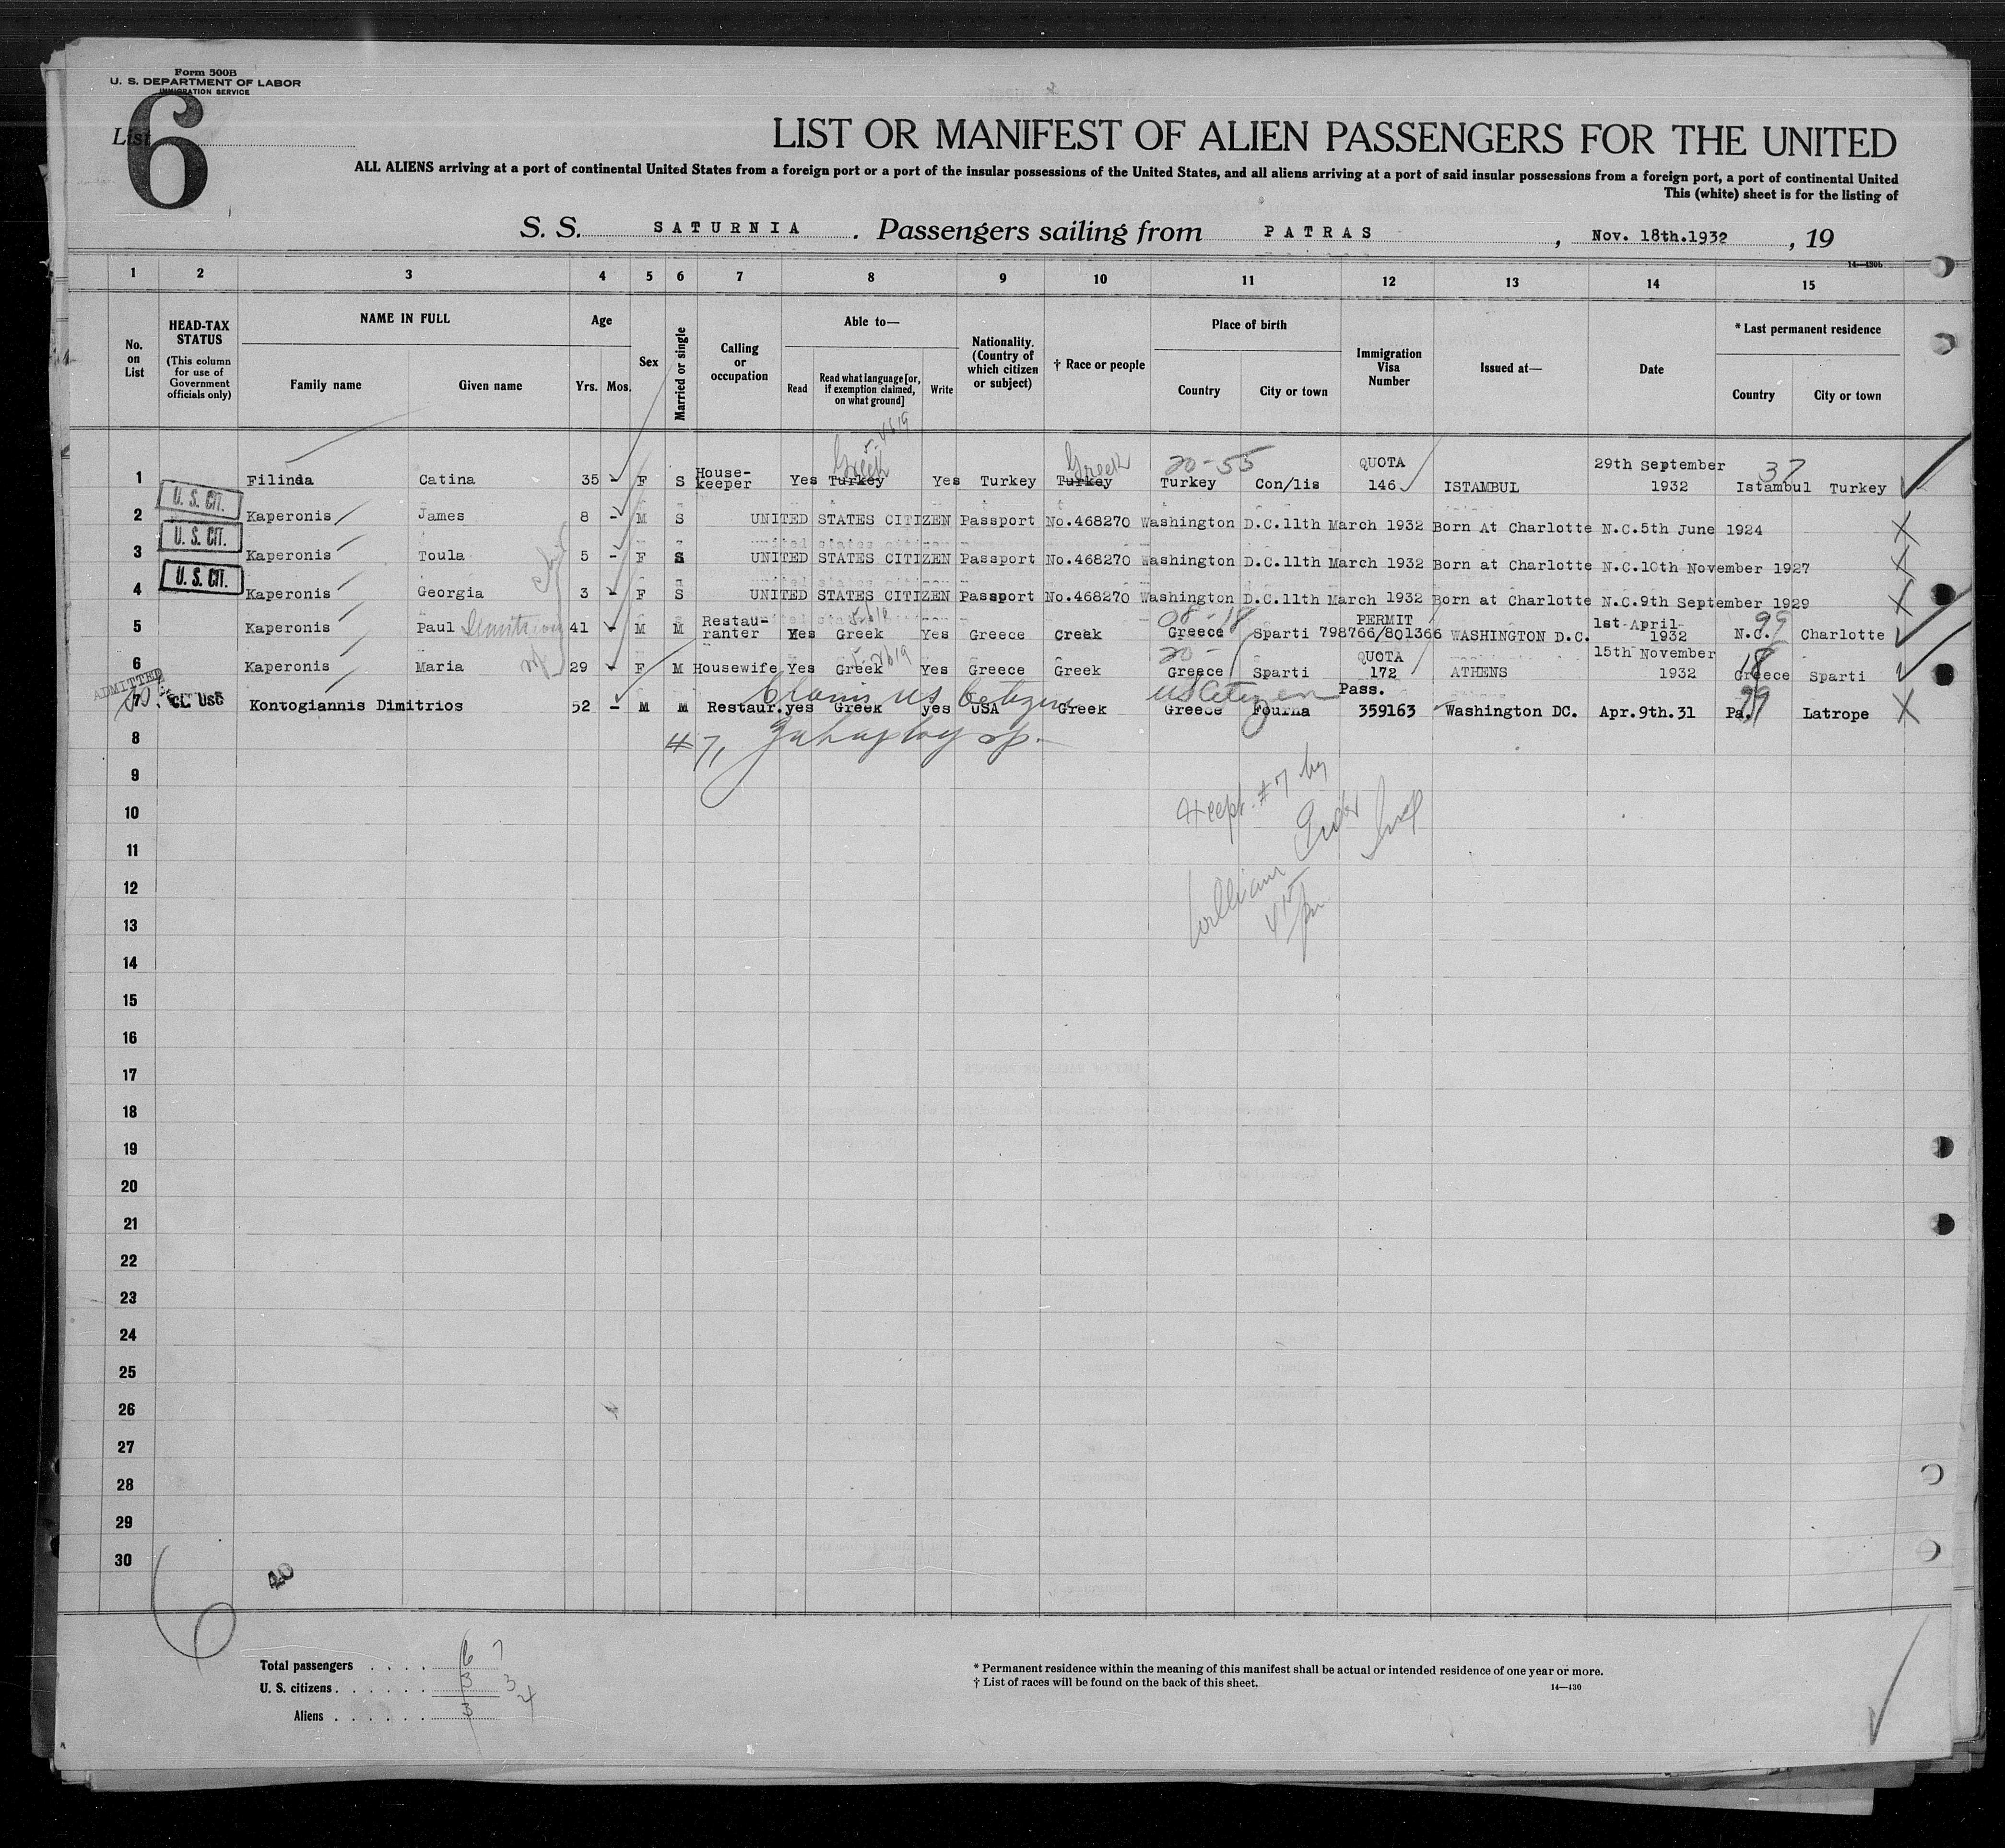 Form 500B
U. S. DEPARTMENT OF LABOR
IMMIGRATION SERVICE
List 6
LIST OR MANIFEST OF ALIEN PASSENGERS FOR THE UNITED
ALL ALIENS arriving at a port of continental United States from a foreign port or a port of the insular possessions of the United States, and all aliens arriving at a port of said insular possessions from a foreign port, a port of continental United
This (white) sheet is for the listing of
S. S. SATURNIA . Passengers sailing from PATRAS , Nov. 18th.1932 , 19
14—430b
1 2 3 4 5 6 7 8 9 10 11 12 13 14 15
No. on List
HEAD-TAX STATUS (This column for use of Government officials only)
NAME IN FULL
Family name Given name
Age
Yrs. Mos.
Sex
Married or single
Calling or occupation
Able to—
Read Read what language [or, if exemption claimed, on what ground] Write
Nationality. (Country of which citizen or subject)
† Race or people
Place of birth
Country City or town
Immigration Visa Number
Issued at—
Date
* Last permanent residence
Country City or town
Greek Greek 20-55 QUOTA 29th September 37
1 Filinda Catina 35 - F S House-keeper Yes Turkey Yes Turkey Turkey Turkey Con/lis 146 ISTAMBUL 1932 Istambul Turkey
U. S. CIT.
2 Kaperonis James 8 - M S UNITED STATES CITIZEN Passport No.468270 Washington D.C.11th March 1932 Born At Charlotte N.C.5th June 1924
U. S. CIT.
3 Kaperonis Toula 5 - F S UNITED STATES CITIZEN Passport No.468270 Washington D.C.11th March 1932 Born at Charlotte N.C.10th November 1927
U. S. CIT.
4 Kaperonis Georgia 3 - F S UNITED STATES CITIZEN Passport No.468270 Washington D.C.11th March 1932 Born at Charlotte N.C.9th September 1929
PERMIT 1st April 99
5 Kaperonis Paul 41 - M M Restau-ranter Yes Greek Yes Greece Creek Greece Sparti 798766/801366 WASHINGTON D.C. 1932 N.C. Charlotte
20- QUOTA 15th November 18
6 Kaperonis Maria 29 - F M Housewife Yes Greek Yes Greece Greek Greece Sparti 172 ATHENS 1932 Greece Sparti
ADMITTED
CL. USC
Claims US Citizen US Citizen Pass. 99
7 Kontogiannis Dimitrios 52 - M M Restaur. yes Greek yes USA Greek Greece Fourna 359163 Washington DC. Apr.9th.31 Pa. Latrope
8 #7,
9
10
11
12
William
13
14
15
16
17
18
19
20
21
22
23
24
25
26
27
28
29
30
6 40
Total passengers . . . . 6 7
U. S. citizens . . . . . . 3 3
Aliens . . . . . . 3 4
* Permanent residence within the meaning of this manifest shall be actual or intended residence of one year or more.
† List of races will be found on the back of this sheet.
14—430